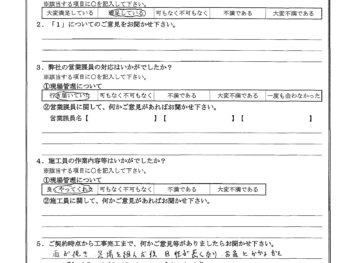 ※該当する項目に○を記入して下さい。
大変満足している 満足している 可もなく不可もなく 不満である 大変不満である
2．「1」についてのご意見をお聞かせ下さい。
3．弊社の営業職員の対応はいかがでしたか？
※該当する項目に○を記入して下さい。
①現場管理について
行き届いていた 可もなく不可もなく 不満である 大変不満である 一度も会わなかった
②営業職員に関して、何かご意見があればお聞かせ下さい。
営業職員名【 】【 】【 】
4．施工員の作業内容等はいかがでしたか？
※該当する項目に○を記入して下さい。
①現場管理について
良くやってくれた 可もなく不可もなく 不満である 大変不満である
②施工員に関して、何かご意見があればお聞かせ下さい。
5．ご契約時点から工事施工まで、何かご意見等がありましたらお聞かせ下さい。
雨が続き 足場を組んだ後 日程が長くなり